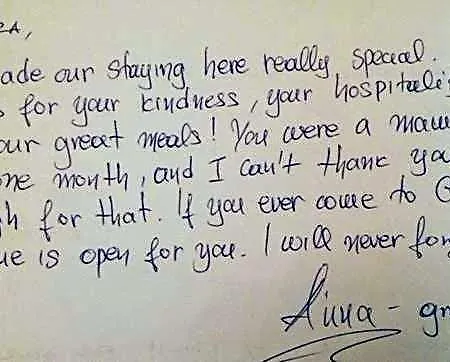 RA,
ade our staying here really special.
s for your kindness, your hospitali
our great meals! You were a mam
one month, and I can't thank yo
h for that. If you ever come to G
me is open for you. I will never for
Anna - gr